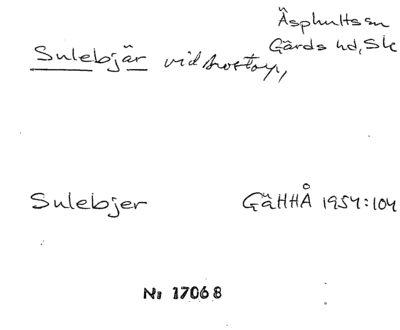 Äsphults sn
Gärds hd, Sk
Sulebjär vid
Sulebjer GäHHÅ 1954:104
Nr 17068